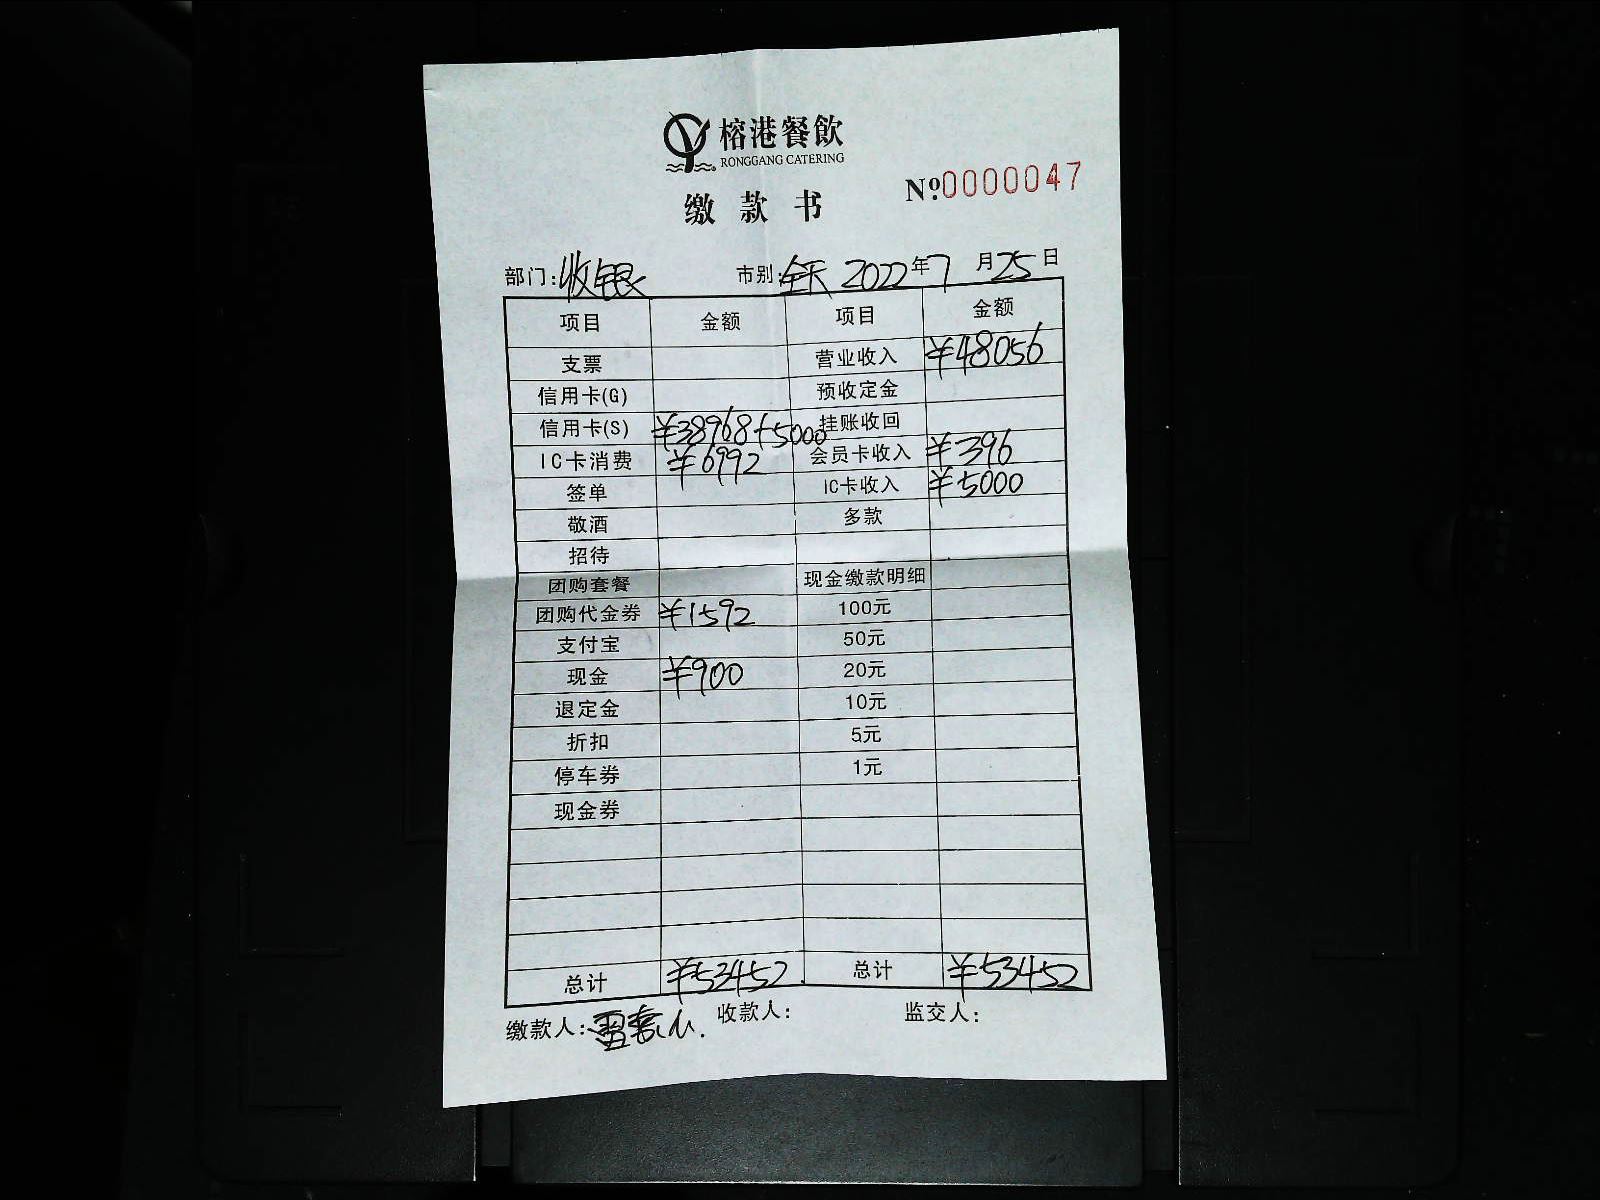 榕港餐飲
RONGGANG CATERING
No.0000047
缴款书
部门:收银 市别:全天 2022年7月25日
项目 金额 项目 金额
支票 营业收入 ¥48056
信用卡(G) 预收定金
信用卡(S) ¥38968+5000 挂账收回
IC卡消费 ¥6992 会员卡收入 ¥396
签单 IC卡收入 ¥5000
敬酒 多款
招待
团购套餐 现金缴款明细
团购代金券 ¥1592 100元
支付宝 50元
现金 ¥900 20元
退定金 10元
折扣 5元
停车券 1元
现金券
总计 ¥53452 总计 ¥53452
缴款人: 收款人: 监交人: